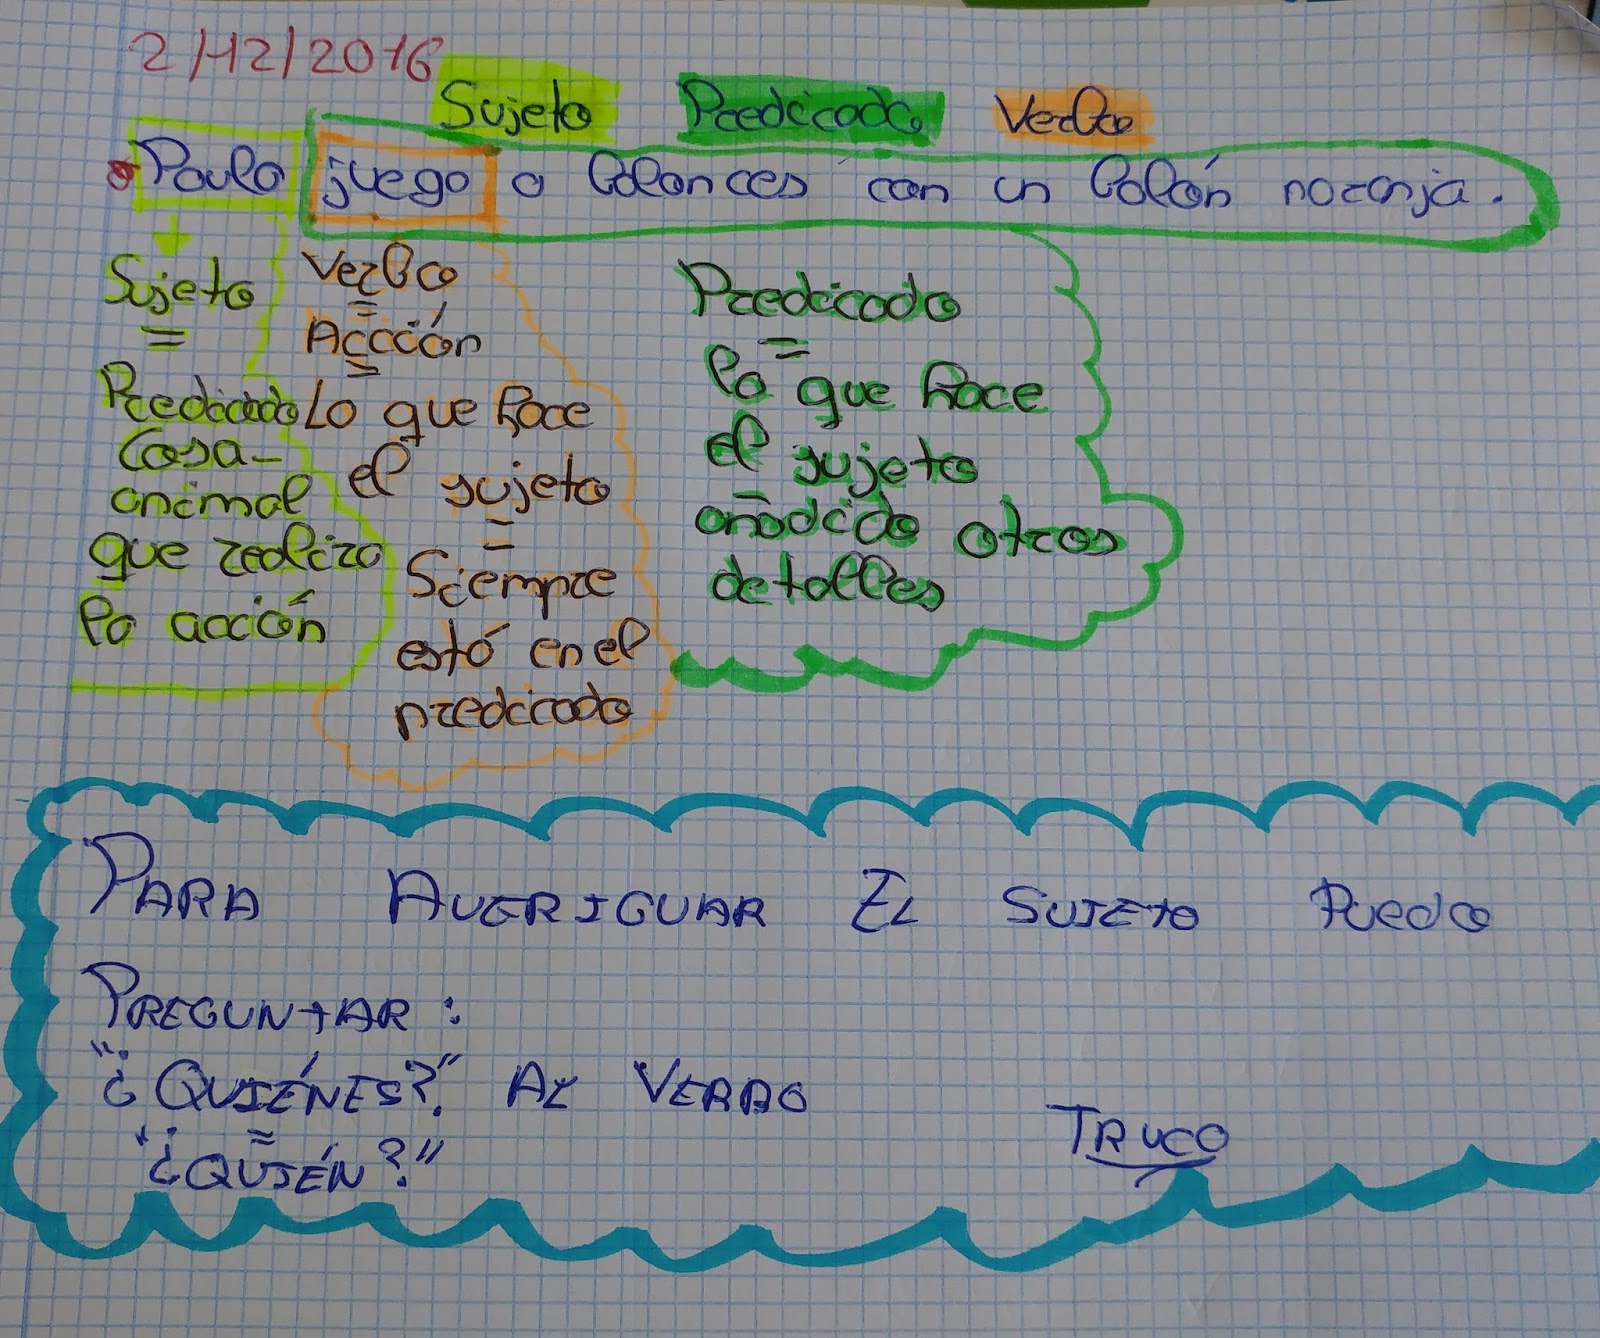 2/12/2016
Sujeto Predicado Verbo
Paula juega a balonces con un balón naranja.
Sujeto
=
Predicado
Cosa-
animal
que realiza
la acción
Verbo
=
Accción
=
Lo que hace
el sujeto
=
Siempre
está en el
predicado
Predicado
=
lo que hace
el sujeto
añadido otros
detalles
PARA AVERIGUAR EL SUJETO PUEDO
PREGUNTAR:
"¿QUIÉNES?" AL VERBO
"¿QUIÉN?"
TRUCO